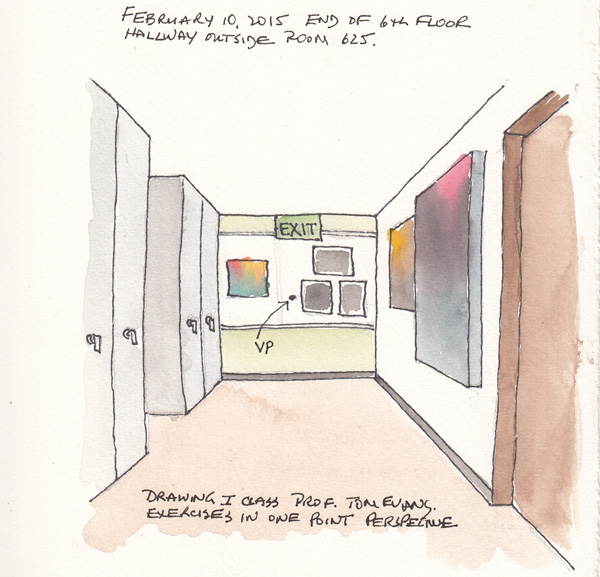 FEBRUARY 10, 2015 END OF 6th FLOOR
HALLWAY OUTSIDE ROOM 625.
EXIT
VP
DRAWING I CLASS PROF. TOM EVANS.
EXERCISES IN ONE POINT PERSPECTIVE